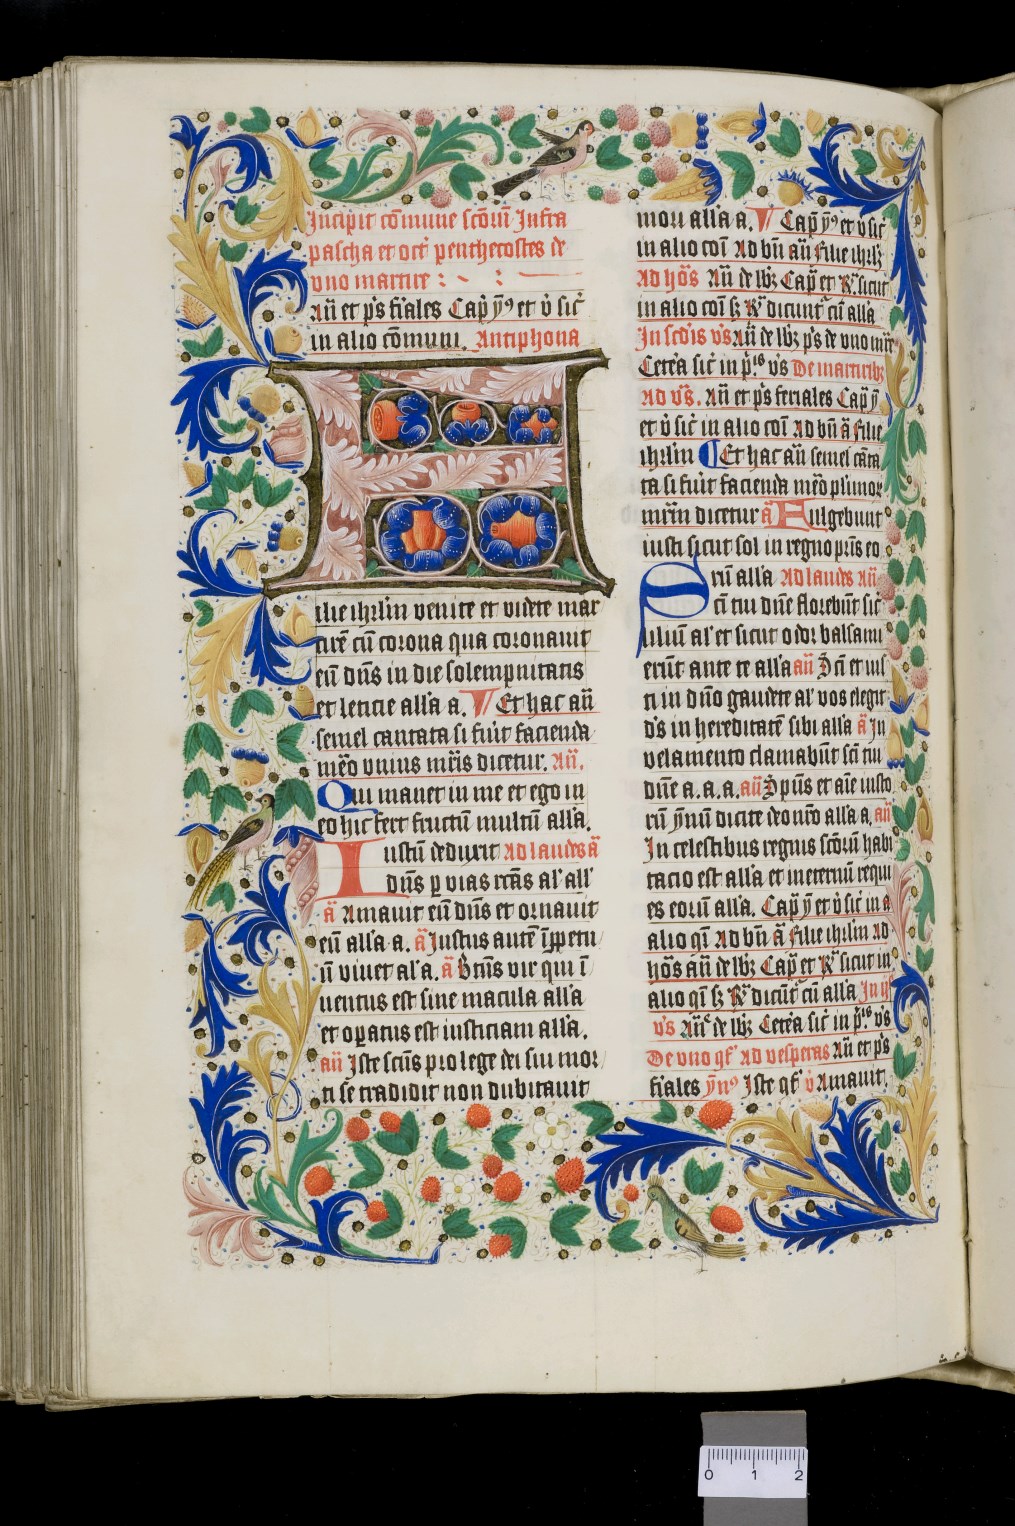 Incipit cōmune scōrū Infra
pascha et oct̄ penthecostes de
vno martire :
Añ et p̄s fiales Cap̄ ẏ⁹ et v̇ sic̄
in alio cōmuni. Antiphona
F
ilie ihrlm̄ venite et videte mar
tirē cū corona qua coronauit
eū dn̄s in die solempnitatis
et leticie all'a a. V Et hac añ
semel cantata si fūit facienda
mēo vnius mr̄is dicetur. Añ.
Qui manet in me et ego in
eo hic fert fructū multū all'a.
Iustū deduxit Ad laudes ā
dn̄s ꝑ vias rc̄as al' all'
ā Amauit eū dn̄s et ornauit
eū all'a a. ā Justus autē īꝑpetu
ū viuet al' a. ā Bt̄us vir qui ī
uentus est sine macula all'a
et oꝑatus est iusticiam all'a.
añ Iste scūs pro lege dei sui mor
ti se tradidit non dubitauit
mori all'a a. V Cap̄ ẏ⁹ et v̇ sic̄
in alio coī Ad bn̄ añ Filie ihrlꝫ
Ad hōs Añ de lbꝫ Cap̄ et R̄ sicut
in alio coī sꝫ R̄ dicunt̄ cū all'a
In scd'is v's Añ de lbꝫ p̄s de vno mr̄e
Cetēa sic̄ in p̄.is v's De martiribꝫ
Ad v̄s. Añ et p̄s feriales Cap̄ ẏ
et v̇ sic̄ in alio coī Ad bn̄ ā Filie
ihrlm̄ Et hac añ semel cāta
ta si fūit facienda mēo plimor
mr̄m̄ dicetur ā Fulgebunt
iusti sicut sol in regno pr̄is eo
rū all'a Ad laudes Añ
Sc̄i tui dn̄e florebūt sic̄
liliū al' et sicut odor balsami
erūt ante te all'a añ Sc̄i et ius
ti in dn̄o gaudete al' vos elegit
d's in hereditatē sibi all'a ā In
velamento clamabūt sc̄i tui
dn̄e a. a. a. añ Sp̄us et aīe iusto
rū ẏmnū dicite deo nr̄o all'a a. añ
In celestibus regnis scōrū habi
tacio est all'a et in eternū requi
es eorū all'a. Cap̄ ẏ et v̇ sic̄ in a
alio qī Ad bn̄ ā Filie ihrlm̄ Ad
hōs añ de lbꝫ Cap̄ et R̄ sicut in
alio qī sꝫ R̄ dicūt̄ cū all'a In ij⁹
v's Añ de lbꝫ Cetēa sic̄ in p̄.is v's
De vno qf' Ad vesperas Añ et p̄s
fiales ẏn⁹ Iste qf' v̇ Amauit.
0 1 2